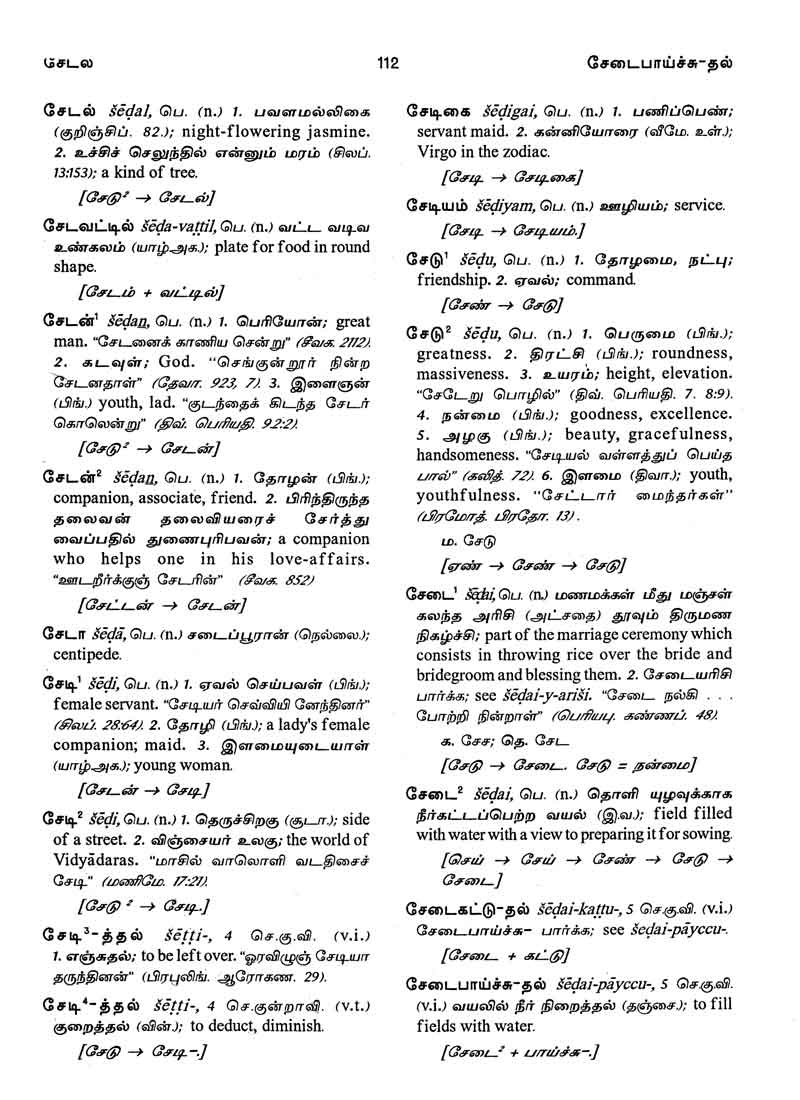 சேடல 112 சேடைபாய்ச்சு-தல்
சேடல் šēḍal, பெ. (n.) 1. பவளமல்லிகை
(குறிஞ்சிப். 82.); night-flowering jasmine.
2. உச்சிச் செலுந்தில் என்னும் மரம் (சிலப்.
13:153); a kind of tree.
[சேடு² → சேடல்]
சேடவட்டில் šēḍa-vaṭṭil, பெ. (n.) வட்ட வடிவ
உண்கலம் (யாழ்.அக.); plate for food in round
shape.
[சேடம் + வட்டில்]
சேடன்¹ šēḍaṉ, பெ. (n.) 1. பெரியோன்; great
man. “சேடனைக் காணிய சென்று” (சீவக. 2112).
2. கடவுள்; God. “செங்குன்றூர் நின்ற
சேடனதாள்” (தேவா. 923, 7). 3. இளைஞன்
(பிங்.) youth, lad. “குடந்தைக் கிடந்த சேடர்
கொலென்று” (திவ். பெரியதி. 9:2:2).
[சேடு² → சேடன்]
சேடன்² šēḍaṉ, பெ. (n.) 1. தோழன் (பிங்.);
companion, associate, friend. 2. பிரிந்திருந்த
தலைவன் தலைவியரைச் சேர்த்து
வைப்பதில் துணைபுரிபவன்; a companion
who helps one in his love-affairs.
“ஊடறீர்க்குஞ் சேடரின்” (சீவக. 852)
[சேட்டன் → சேடன்]
சேடா šēḍā, பெ. (n.) சடைப்பூரான் (நெல்லை.);
centipede.
சேடி¹ šēḍi, பெ. (n.) 1. ஏவல் செய்பவள் (பிங்.);
female servant. “சேடியர் செவ்வியி னேந்தினர்”
(சிலப். 28:64). 2. தோழி (பிங்.); a lady's female
companion; maid. 3. இளமையுடையாள்
(யாழ்.அக.); young woman.
[சேடன் → சேடி.]
சேடி² šēḍi, பெ. (n.) 1. தெருச்சிறகு (சூடா.); side
of a street. 2. விஞ்சையர் உலகு; the world of
Vidyādaras. “மாசில் வாலொளி வடதிசைச்
சேடி” (மணிமே. 17:21).
[சேடு ² → சேடி.]
சேடி³-த்தல் šēṭṭi-, 4 செ.கு.வி. (v.i.)
1. எஞ்சுதல்; to be left over. “ஓரவிழுஞ் சேடியா
தருந்தினன்” (பிரபுலிங். ஆரோகண. 29).
சேடி⁴-த்தல் šēṭṭi-, 4 செ.குன்றாவி. (v.t.)
குறைத்தல் (வின்.); to deduct, diminish.
[சேடு → சேடி-.]
சேடிகை šēḍigai, பெ. (n.) 1. பணிப்பெண்;
servant maid. 2. கன்னியோரை (வீமே. உள்.);
Virgo in the zodiac.
[சேடி → சேடிகை]
சேடியம் šēḍiyam, பெ. (n.) ஊழியம்; service.
[சேடி → சேடியம்.]
சேடு¹ šēḍu, பெ. (n.) 1. தோழமை, நட்பு;
friendship. 2. ஏவல்; command.
[சேண் → சேடு]
சேடு² šēḍu, பெ. (n.) 1. பெருமை (பிங்.);
greatness. 2. திரட்சி (பிங்.); roundness,
massiveness. 3. உயரம்; height, elevation.
“சேடேறு பொழில்” (திவ். பெரியதி. 7. 8:9).
4. நன்மை (பிங்.); goodness, excellence.
5. அழகு (பிங்.); beauty, gracefulness,
handsomeness. “சேடியல் வள்ளத்துப் பெய்த
பால்” (கலித். 72). 6. இளமை (திவா.); youth,
youthfulness. “சேட்டார் மைந்தர்கள்”
(பிரமோத். பிரதோ. 13) .
ம. சேடு
[ஏண் → சேண் → சேடு]
சேடை¹ šēḍai, பெ. (n.) மணமக்கள் மீது மஞ்சள்
கலந்த அரிசி (அட்சதை) தூவும் திருமண
நிகழ்ச்சி; part of the marriage ceremony which
consists in throwing rice over the bride and
bridegroom and blessing them. 2. சேடையரிசி
பார்க்க; see šēḍai-y-ariši. “சேடை நல்கி . . .
போற்றி நின்றாள்” (பெரியபு. கண்ணப். 48).
க. சேச; தெ. சேட
[சேடு → சேடை. சேடு = நன்மை]
சேடை² šēḍai, பெ. (n.) தொளி யுழவுக்காக
நீர்கட்டப்பெற்ற வயல் (இ.வ.); field filled
with water with a view to preparing it for sowing.
[செய் → சேய் → சேண் → சேடு →
சேடை]
சேடைகட்டு-தல் šēḍai-kaṭṭu-, 5 செ.கு.வி. (v.i.)
சேடைபாய்ச்சு- பார்க்க; see šeḍai-pāyccu-.
[சேடை + கட்டு]
சேடைபாய்ச்சு-தல் šēḍai-pāyccu-, 5 செ.கு.வி.
(v.i.) வயலில் நீர் நிறைத்தல் (தஞ்சை.); to fill
fields with water.
[சேடை² + பாய்ச்சு-.]